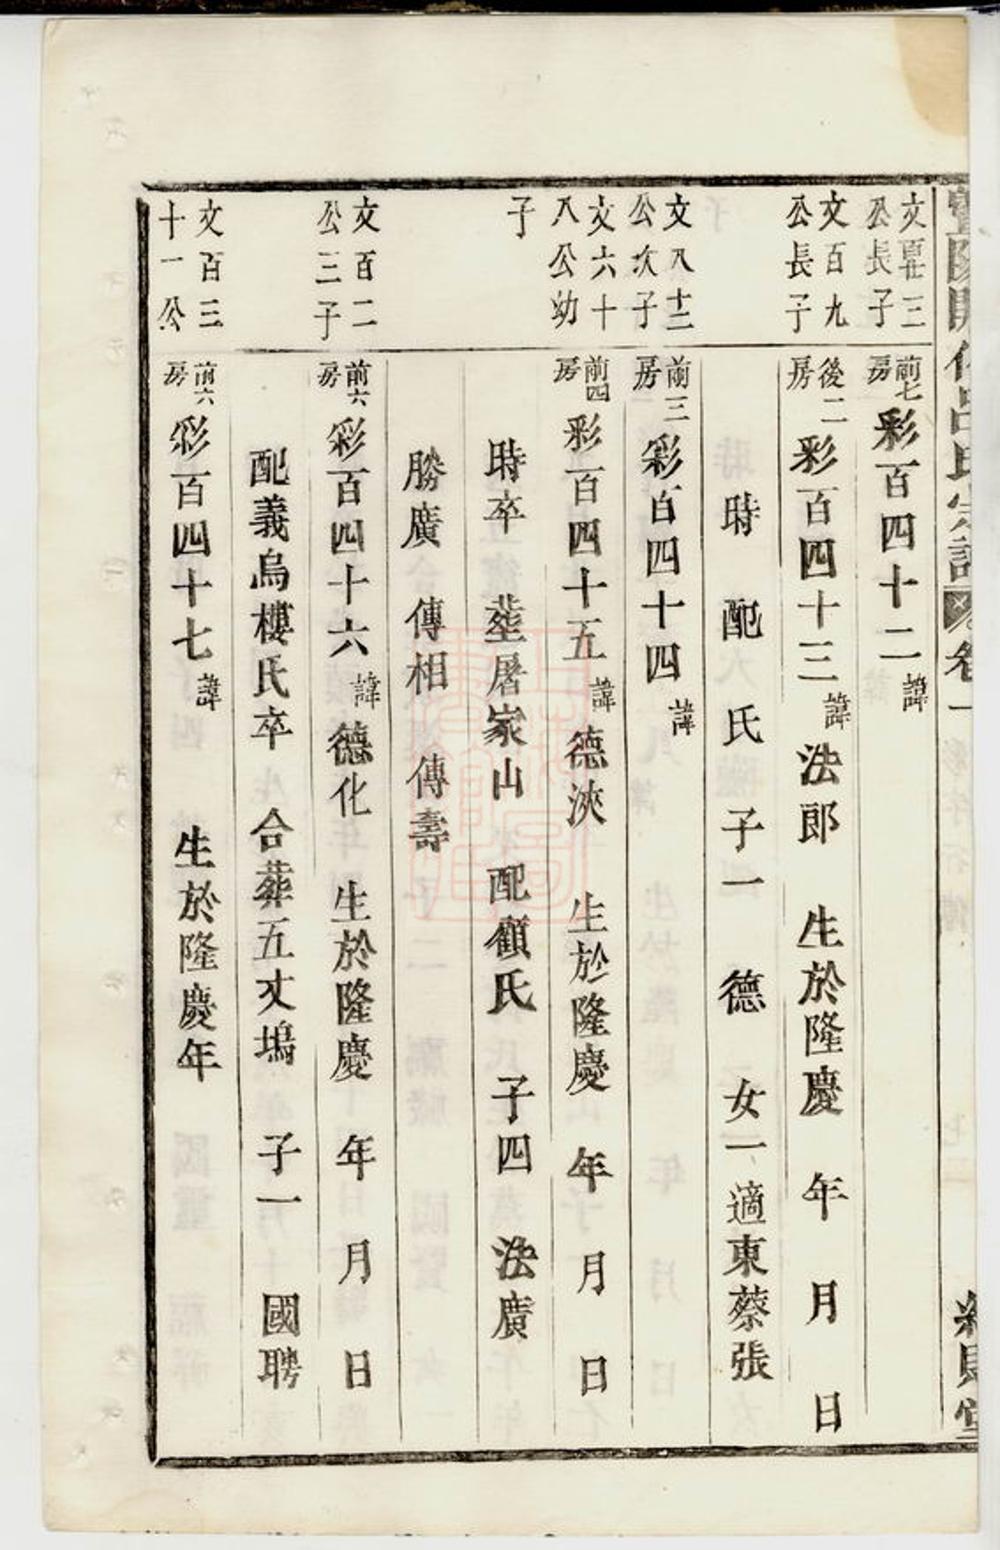 暨陽開化呂氏宗譜 卷一
公長子 前七房 彩百四十二 諱
文百九公長子 後二房 彩百四十三 諱法郎 生於隆慶 年 月 日
時 配 氏 子一 德 女一 適東蔡張
文八十二公次子 前三房 彩百四十四 諱
文六十八公幼子 前四房 彩百四十五 諱德浹 生於隆慶 年 月 日
時卒 葬屠家山 配顧氏 子四 法廣
勝廣 傳相 傳壽
文百二公三子 前六房 彩百四十六 諱德化 生於隆慶 年 月 日
配義烏樓氏卒 合葬五丈塢 子一 國聘
文百三十一公 前六房 彩百四十七 諱 生於隆慶年